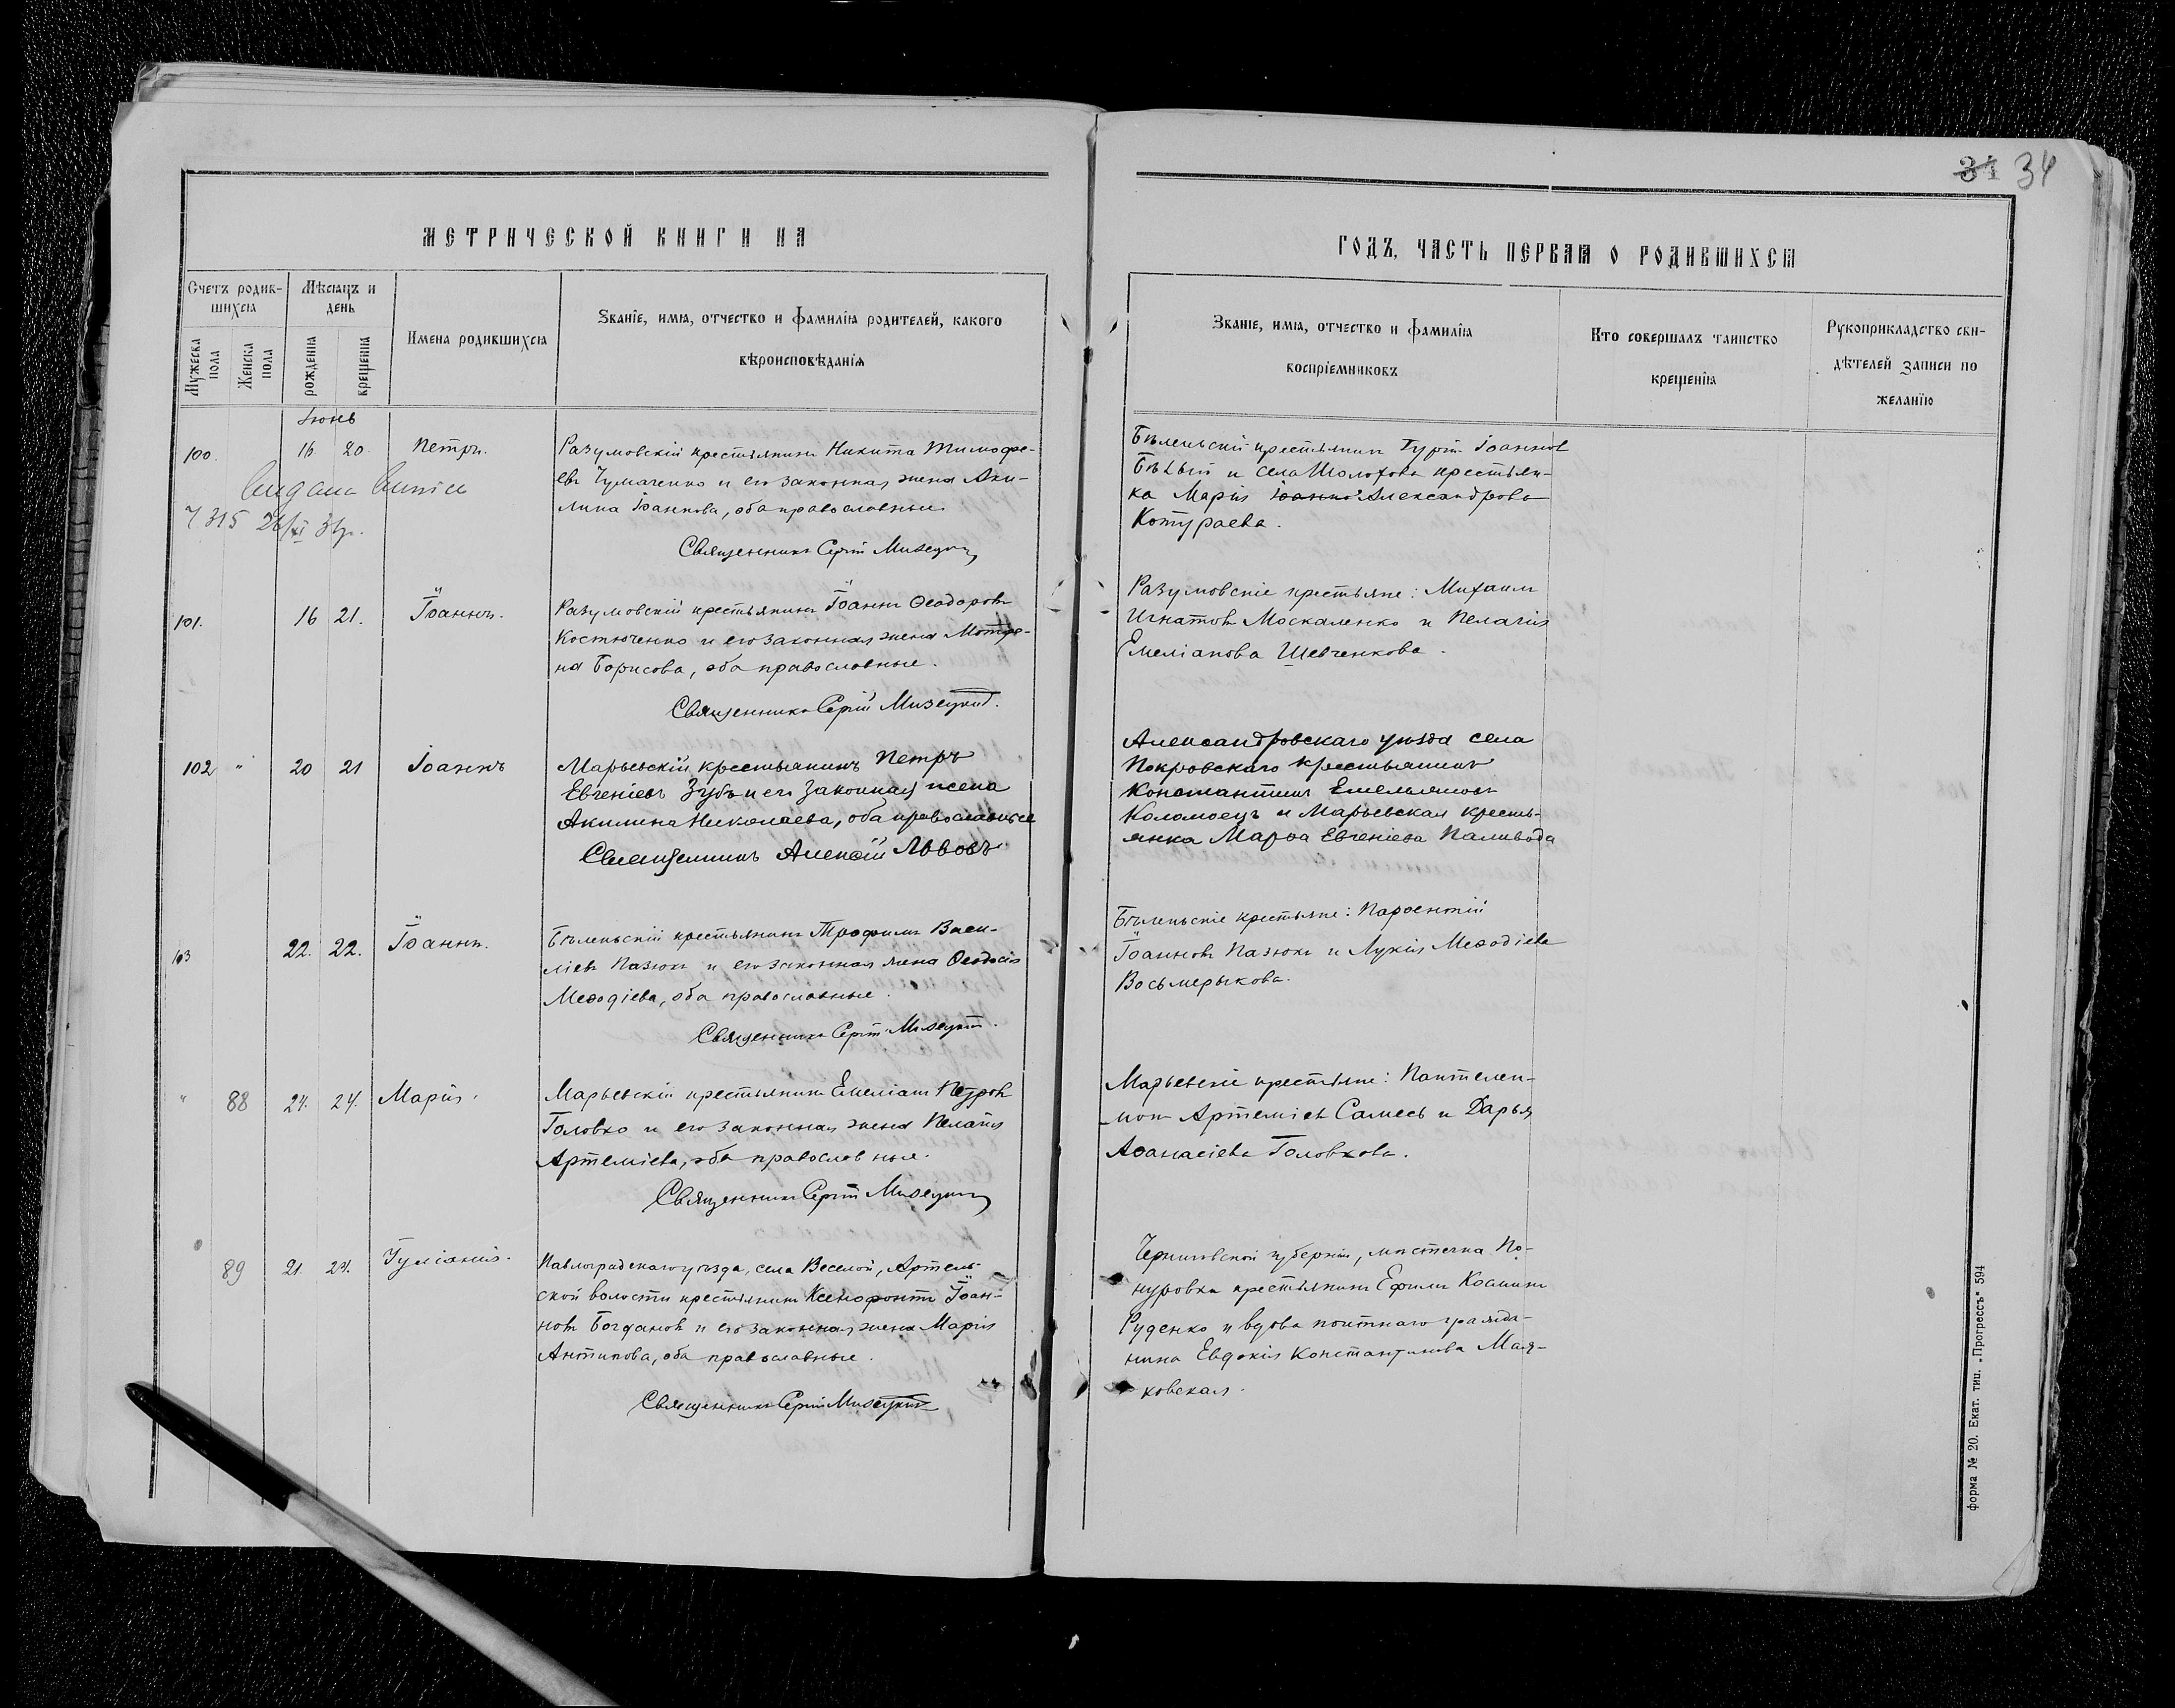 34 34
МЕТРИЧЕСКОЙ КНИГИ НА
ГОДЪ, ЧАСТЬ ПЕРВАЯ О РОДИВШИХСЯ
Счетъ родив-
шихся
Мужеска пола
Женска пола
Мѣсяцъ и
день
рожденія
крещенія
Имена родившихся
Званіе, имя, отчество и фамилія родителей, какого
вѣроисповѣданія
Званіе, имя, отчество и фамилія
воспріемниковъ
Кто совершалъ таинство
крещенія
Рукоприкладство сви-
дѣтелей записи по
желанію
Іюнь
100. 16 20. Петръ.
Разумовскій крестьянинъ Никита Тимофе-
евъ Чумаченко и его законная жена Аки-
лина Іоаннова, оба православные.
Священникъ Сергій
Бѣленьскій крестьянинъ Гурій Іоанновъ
Бѣлый и села Шолохова крестьян-
ка Марія Іоанно Александрова
Котураева.
315
101. 16 21. Іоаннъ.
Разумовскій крестьянинъ Іоаннъ Ѳеодоровъ
Костюченко и его законная жена Матро-
на Борисова, оба православные.
Священникъ Сергій
Разумовскіе крестьяне: Михаилъ
Игнатовъ Москаленко и Пелагія
Емеліанова Шевченкова.
102 " 20 21 Іоаннъ
Марьевскій крестьянинъ Петръ
Евгеніевъ Зубъ и его законная жена
Акилина Николаева, оба православные
Священникъ Алексій Львовъ
Александровскаго уѣзда села
Покровскаго крестьянинъ
Константинъ Емельяновъ
Коломоецъ и Марьевская кресть-
янка Марѳа Евгеніева Паливода
103 22. 22. Іоаннъ.
Бѣленьскій крестьянинъ Трофимъ Васи-
ліевъ Пазюкъ и его законная жена Ѳеодосія
Меѳодіева, оба православные.
Священникъ Сергій
Бѣленьскіе крестьяне: Парѳентій
Іоанновъ Пазюкъ и Лукія Меѳодіева
Восьмерыкова.
" 88 24. 24. Марія.
Марьевскій крестьянинъ Емеліанъ Петровъ
Головко и его законная жена Пелагія
Артеміева, оба православные.
Священникъ Сергій
Марьевскіе крестьяне: Пантелеи-
монъ Артеміевъ и Дарья
Аѳанасіева Головкова.
89 21. 24. Іуліанія.
Павлоградскаго уѣзда, села Веселой, Артель-
ской волости крестьянинъ Ксенофонтъ Іоан-
новъ Богдановъ и его законная жена Марія
Антипова, оба православные.
Священникъ Сергій
Черниговской губерніи, мѣстечка По-
нуровка крестьянинъ Ефимъ Косминъ
Руденко и вдова почтнаго гражда-
нина Евдокія Константинова Мая-
ковская.
форма № 20. Екат. тип. „Прогрессъ“ 594